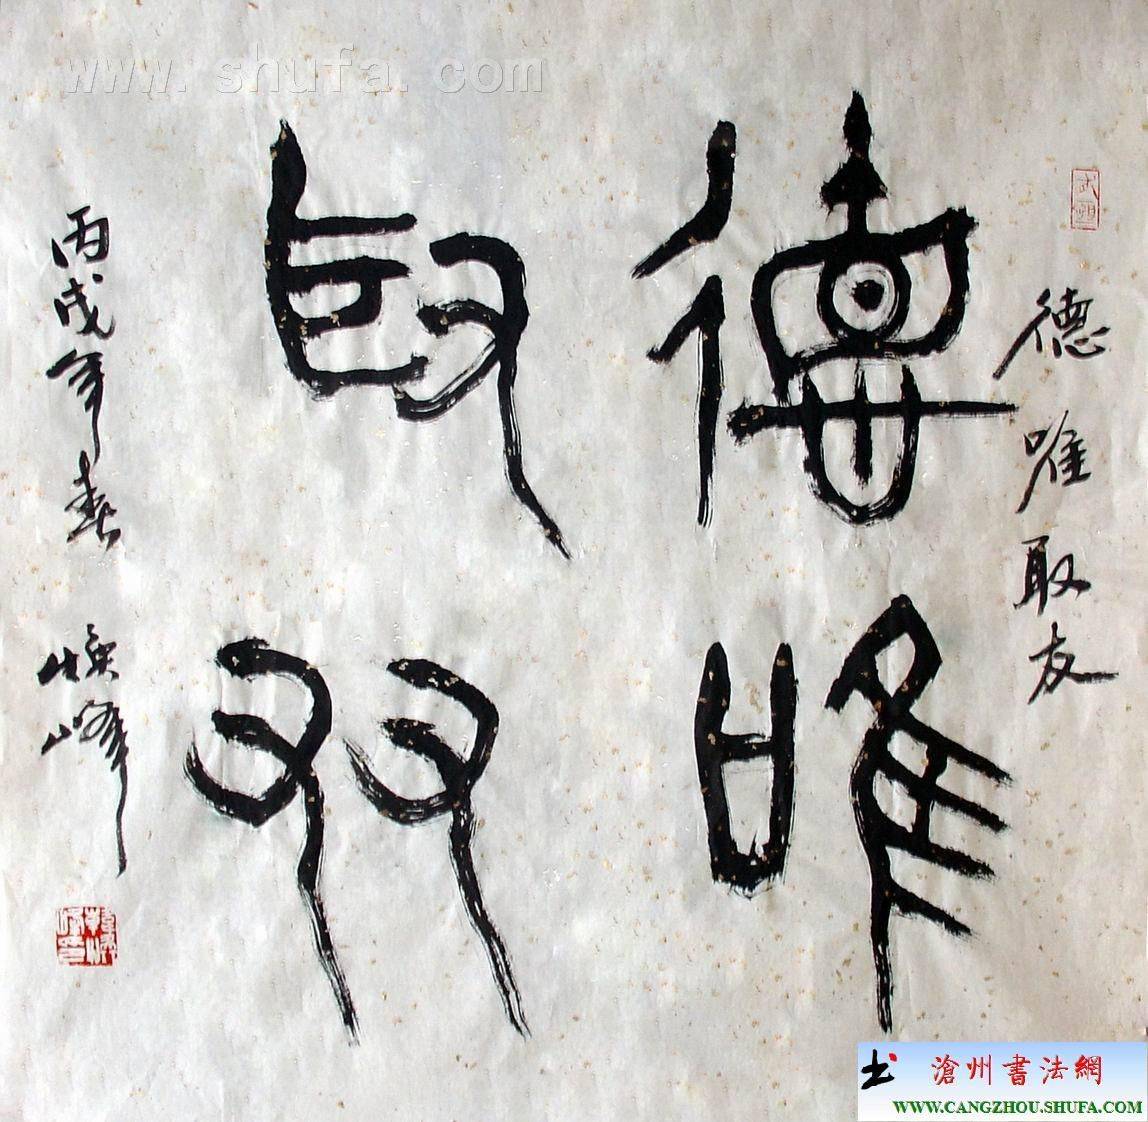 www.shufa.com
德唯
取友
德唯取友
丙戌年春
焕峰
滄州書法網
WWW.CANGZHOU.SHUFA.COM